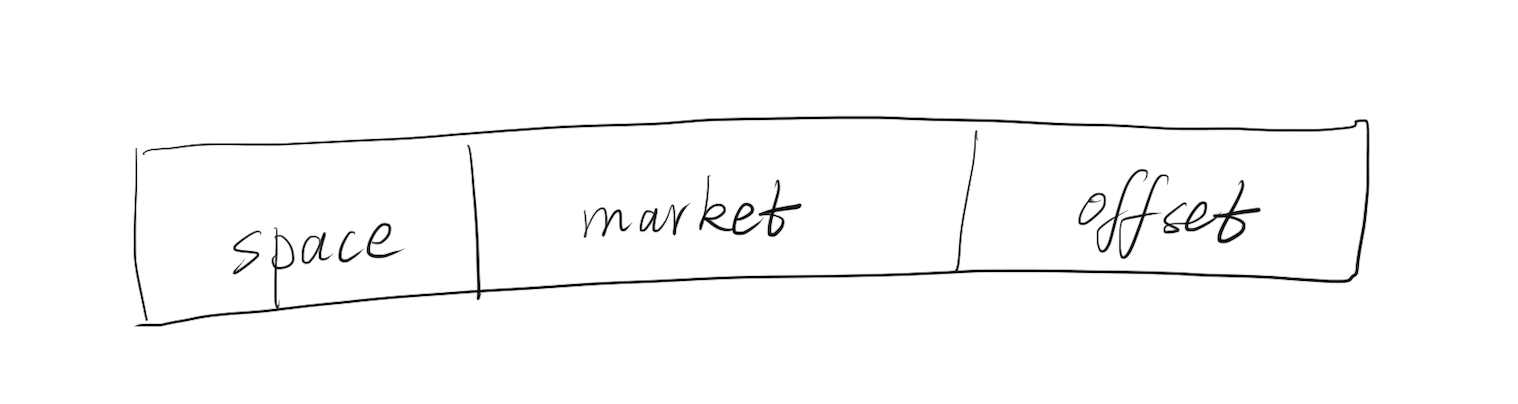 space market offset